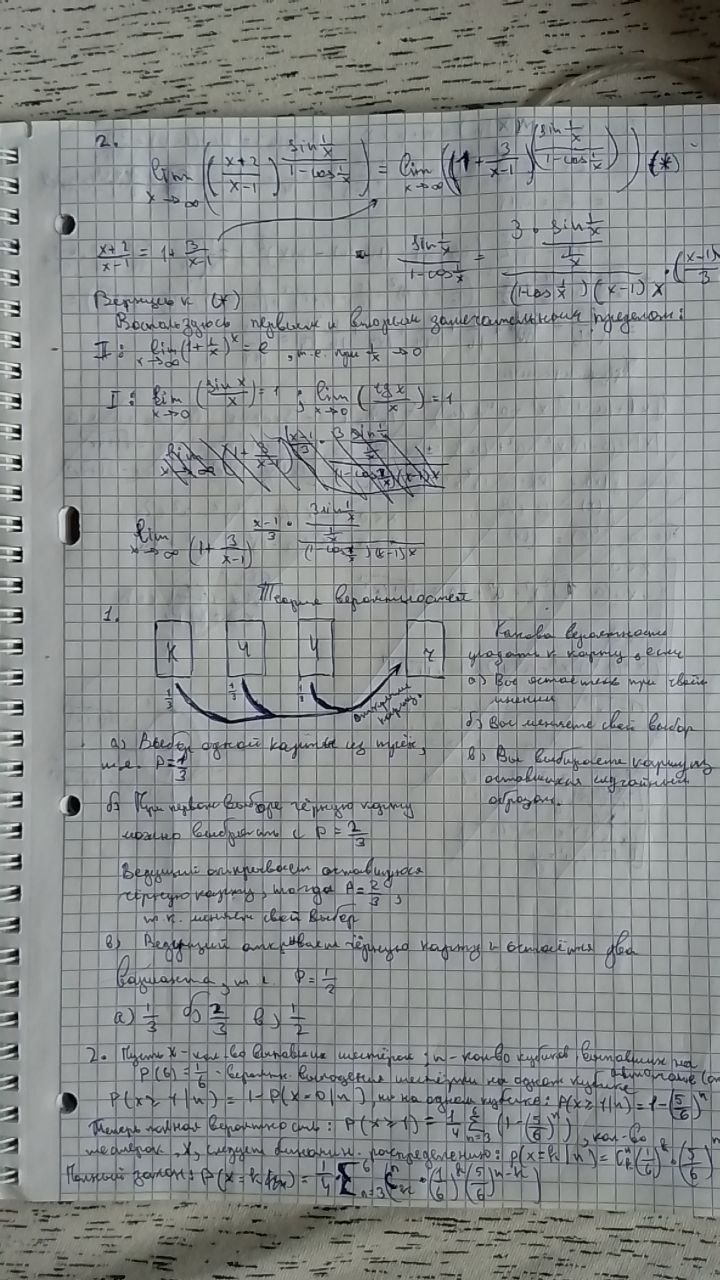 2.
lim x→∞ ((x+2)/(x-1))^(sin 1/x / (1-cos 1/x)) = lim x→∞ ((1 + 3/(x-1))^(sin 1/x / (1-cos 1/x))) (*)
(x+2)/(x-1) = 1 + 3/(x-1)
sin 1/x / (1-cos 1/x) = (3 · sin 1/x / (1/x)) / ((1-cos 1/x)(x-1)x) · (x-1)/3
Вернусь к (*)
Воспользуюсь первым и вторым замечательным пределом:
II: lim x→∞ (1+1/x)^x = e, т.е. при 1/x → 0
I: lim x→0 (sin x / x) = 1 ; lim x→0 (tg x / x) = 1
lim x→∞ (1 + 3/(x-1))^((x-1)/3 · (3 sin 1/x / (1/x)) / ((1-cos 1/x)(x-1)x))
Теория вероятностей
1.
К Ч Ч Ч
1/3 1/3 1/3
Какова вероятность
угадать к карту, если
а) Вы остаетесь при своём
мнении
б) Вы меняете свой выбор
в) Вы выбираете карту из
оставшихся случайным
образом.
а) Выбор одной карты из трёх,
т.е. P = 1/3
б) При первом выборе чёрную карту
можно выбрать с P = 2/3
Ведущий открывает оставшуюся
чёрную карту, тогда P = 2/3,
т.к. меняем свой выбор
в) Ведущий открывает чёрную карту и остаётся два
варианта, т.е. P = 1/2
а) 1/3 б) 2/3 в) 1/2
2. Пусть X - кол-во выпавших шестёрок; n - кол-во кубиков, выпавших на
P(6) = 1/6 - вероятн. выпадения шестёрки на одном кубике
P(x≥1|n) = 1-P(x=0|n), на одном кубике: P(x≥1|n) = 1-(5/6)^n
Теперь полная вероятность: P(x≥1) = 1/4 Σ n=3 6 (1-(5/6)^n), кол-во
шестёрок, X, следует биномин. распределению: P(x=k|n) = C (1/6)^k · (5/6)
Полный закон: P(x=k) = 1/4 Σ n=3 6 (C · (1/6)^k (5/6)^(n-k))